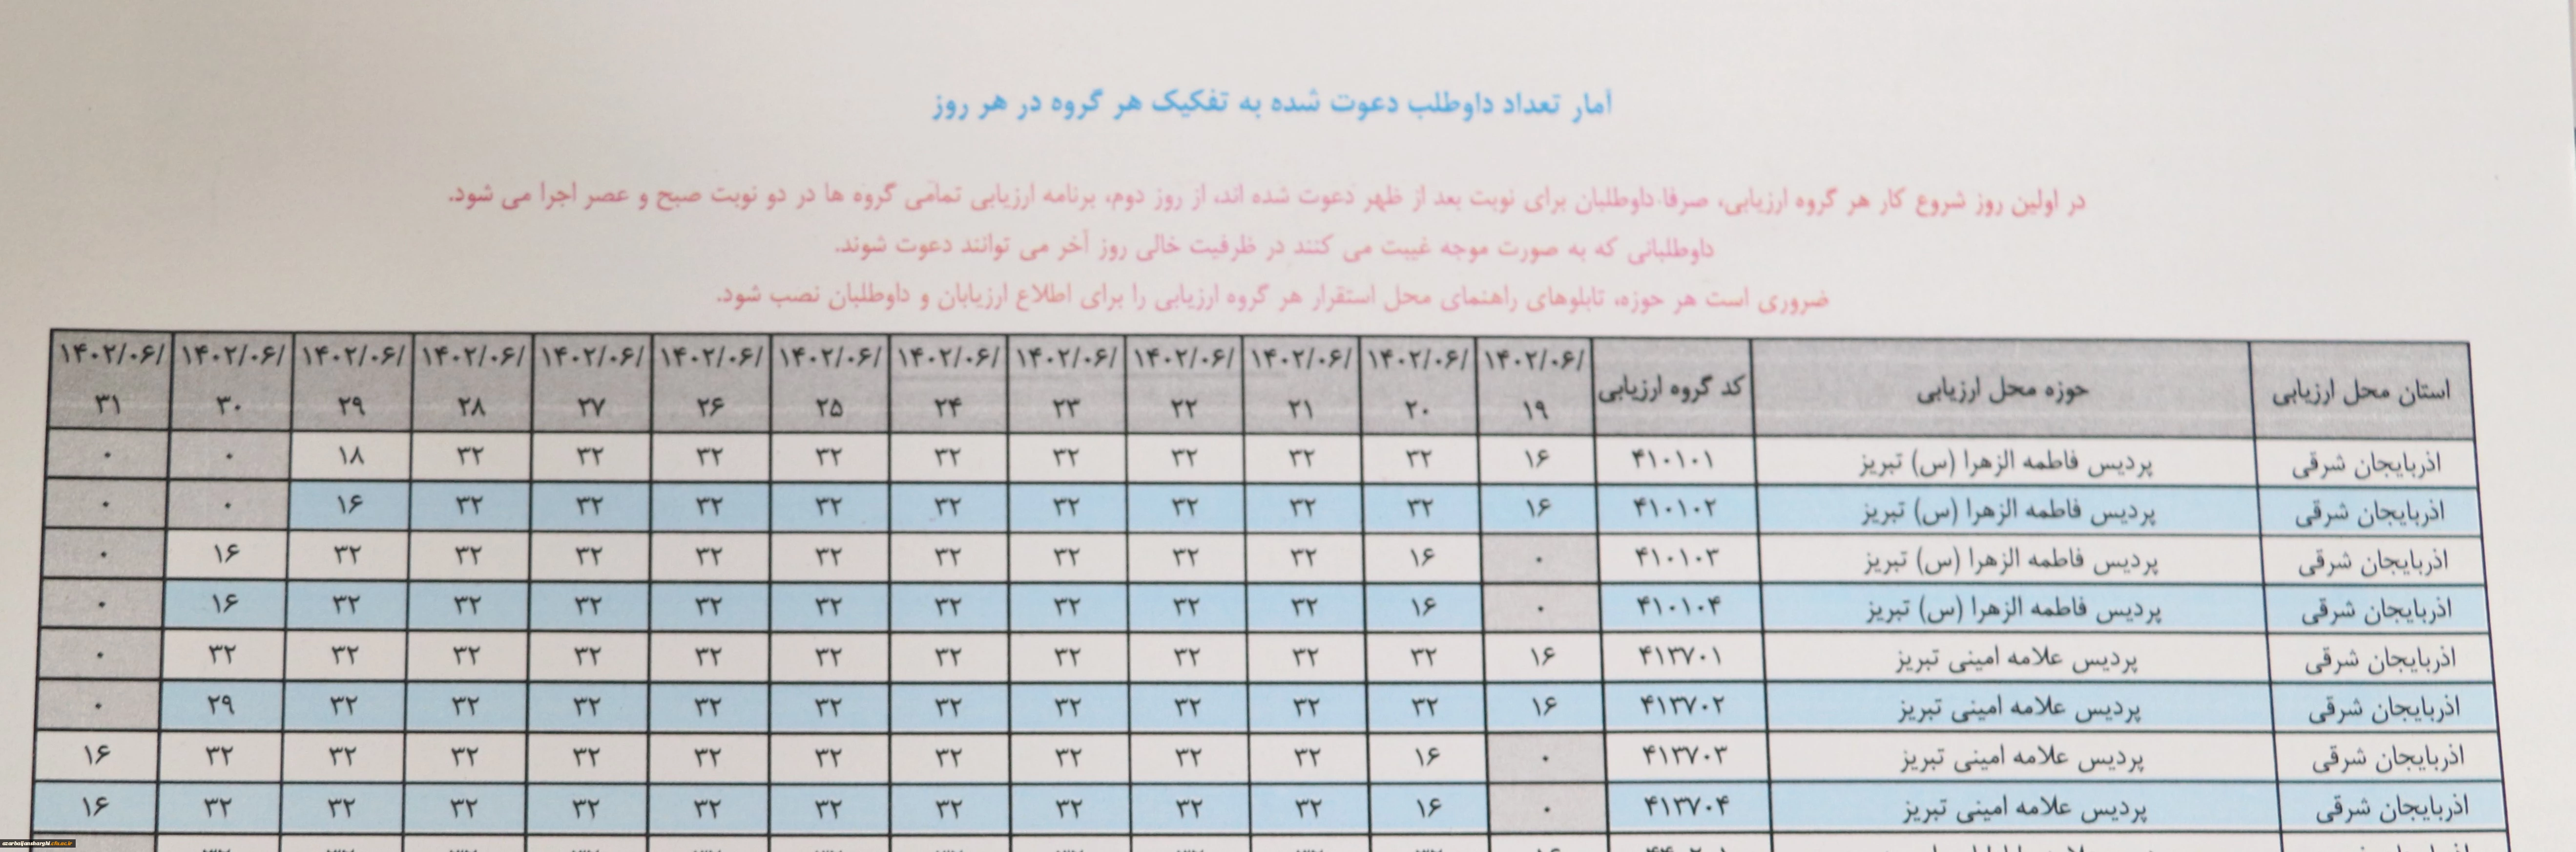 آمار تعداد داوطلب دعوت شده به تفکیک هر گروه در هر روز
در اولین روز شروع کار هر گروه ارزیابی، صرفا داوطلبان برای نوبت بعد از ظهر دعوت شده اند، از روز دوم، برنامه ارزیابی تمامی گروه ها در دو نوبت صبح و عصر اجرا می شود.
داوطلبانی که به صورت موجه غیبت می کنند در ظرفیت خالی روز آخر می توانند دعوت شوند.
ضروری است هر حوزه، تابلوهای راهنمای محل استقرار هر گروه ارزیابی را برای اطلاع ارزیابان و داوطلبان نصب شود.
استان محل ارزیابی حوزه محل ارزیابی کد گروه ارزیابی ۱۴۰۲/۰۶/۱۹ ۱۴۰۲/۰۶/۲۰ ۱۴۰۲/۰۶/۲۱ ۱۴۰۲/۰۶/۲۲ ۱۴۰۲/۰۶/۲۳ ۱۴۰۲/۰۶/۲۴ ۱۴۰۲/۰۶/۲۵ ۱۴۰۲/۰۶/۲۶ ۱۴۰۲/۰۶/۲۷ ۱۴۰۲/۰۶/۲۸ ۱۴۰۲/۰۶/۲۹ ۱۴۰۲/۰۶/۳۰ ۱۴۰۲/۰۶/۳۱
اذربایجان شرقی پردیس فاطمه الزهرا (س) تبریز ۴۱۰۱۰۱ ۱۶ ۳۲ ۳۲ ۳۲ ۳۲ ۳۲ ۳۲ ۳۲ ۳۲ ۳۲ ۱۸ ۰ ۰
اذربایجان شرقی پردیس فاطمه الزهرا (س) تبریز ۴۱۰۱۰۲ ۱۶ ۳۲ ۳۲ ۳۲ ۳۲ ۳۲ ۳۲ ۳۲ ۳۲ ۳۲ ۱۶ ۰ ۰
اذربایجان شرقی پردیس فاطمه الزهرا (س) تبریز ۴۱۰۱۰۳ ۰ ۱۶ ۳۲ ۳۲ ۳۲ ۳۲ ۳۲ ۳۲ ۳۲ ۳۲ ۳۲ ۱۶ ۰
اذربایجان شرقی پردیس فاطمه الزهرا (س) تبریز ۴۱۰۱۰۴ ۰ ۱۶ ۳۲ ۳۲ ۳۲ ۳۲ ۳۲ ۳۲ ۳۲ ۳۲ ۳۲ ۱۶ ۰
اذربایجان شرقی پردیس علامه امینی تبریز ۴۱۳۷۰۱ ۱۶ ۳۲ ۳۲ ۳۲ ۳۲ ۳۲ ۳۲ ۳۲ ۳۲ ۳۲ ۳۲ ۳۲ ۰
اذربایجان شرقی پردیس علامه امینی تبریز ۴۱۳۷۰۲ ۱۶ ۳۲ ۳۲ ۳۲ ۳۲ ۳۲ ۳۲ ۳۲ ۳۲ ۳۲ ۳۲ ۲۹ ۰
اذربایجان شرقی پردیس علامه امینی تبریز ۴۱۳۷۰۳ ۰ ۱۶ ۳۲ ۳۲ ۳۲ ۳۲ ۳۲ ۳۲ ۳۲ ۳۲ ۳۲ ۳۲ ۱۶
اذربایجان شرقی پردیس علامه امینی تبریز ۴۱۳۷۰۴ ۰ ۱۶ ۳۲ ۳۲ ۳۲ ۳۲ ۳۲ ۳۲ ۳۲ ۳۲ ۳۲ ۳۲ ۱۶
azarbaijansharghi.cfu.ac.ir